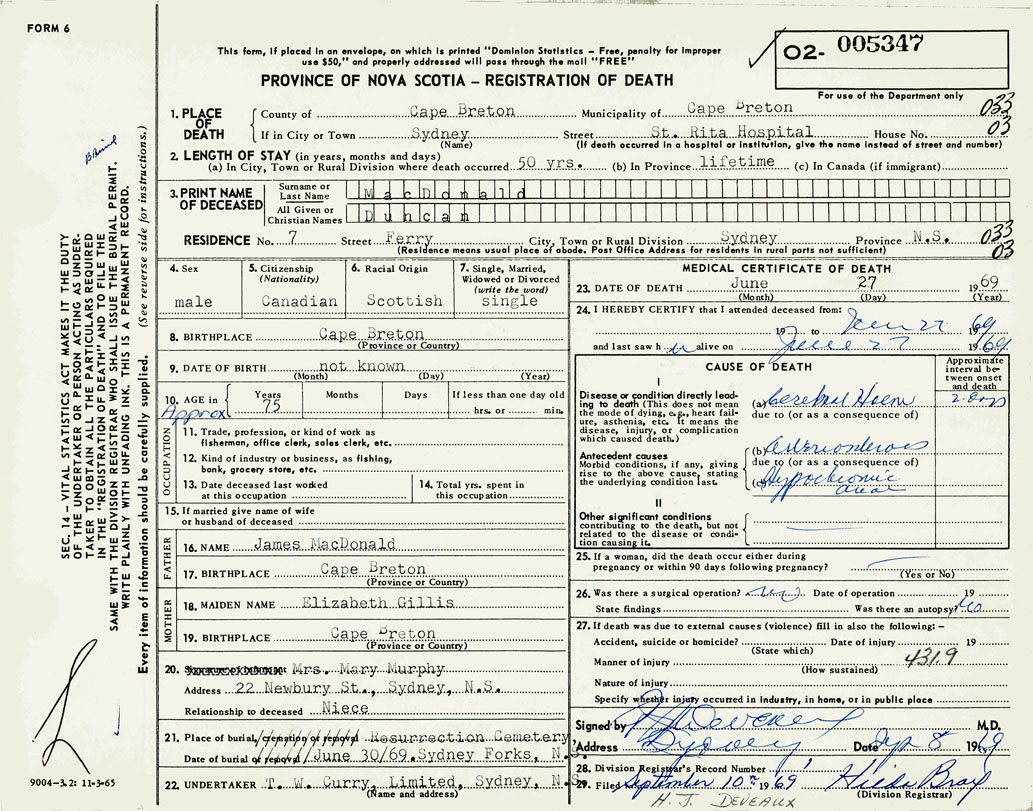 FORM 6
This form, if placed in an envelope, on which is printed "Dominion Statistics – Free, penalty for improper
use $50," and properly addressed will pass through the mail "FREE"
PROVINCE OF NOVA SCOTIA – REGISTRATION OF DEATH
02- 005347
For use of the Department only
1. PLACE OF DEATH
County of Cape Breton Municipality of Cape Breton 033
If in City or Town Sydney Street St. Rita Hospital House No. 03
(Name) (If death occurred in a hospital or institution, give the name instead of street and number)
2. LENGTH OF STAY (in years, months and days)
(a) In City, Town or Rural Division where death occurred 50 yrs. (b) In Province lifetime (c) In Canada (if immigrant)
3. PRINT NAME OF DECEASED
Surname or Last Name MacDonald
All Given or Christian Names Duncan
RESIDENCE No. 7 Street Ferry City, Town or Rural Division Sydney Province N.S. 033
(Residence means usual place of abode. Post Office Address for residents in rural parts not sufficient) 03
4. Sex
male
5. Citizenship
(Nationality)
Canadian
6. Racial Origin
Scottish
7. Single, Married,
Widowed or Divorced
(write the word)
single
8. BIRTHPLACE Cape Breton
(Province or Country)
9. DATE OF BIRTH not known
(Month) (Day) (Year)
10. AGE in Years 75 Months Days If less than one day old
Approx hrs. or min.
OCCUPATION
11. Trade, profession, or kind of work as
fisherman, office clerk, sales clerk, etc.
12. Kind of industry or business, as fishing,
bank, grocery store, etc.
13. Date deceased last worked
at this occupation
14. Total yrs. spent in
this occupation
15. If married give name of wife
or husband of deceased
FATHER
16. NAME James MacDonald
17. BIRTHPLACE Cape Breton
(Province or Country)
MOTHER
18. MAIDEN NAME Elizabeth Gillis
19. BIRTHPLACE Cape Breton
(Province or Country)
20. Mrs. Mary Murphy
Address 22 Newbury St., Sydney, N.S.
Relationship to deceased Niece
21. Place of burial, cremation or removal Resurrection Cemetery,
Date of burial or removal June 30/69 Sydney Forks, N.S.
22. UNDERTAKER T. W. Curry, Limited, Sydney, N.S.
(Name and address)
MEDICAL CERTIFICATE OF DEATH
23. DATE OF DEATH June 27 1969
(Month) (Day) (Year)
24. I HEREBY CERTIFY that I attended deceased from:
19 to June 27 1969
and last saw him alive on June 27 1969
CAUSE OF DEATH
Approximate
interval be-
tween onset
and death
I
Disease or condition directly lead-
ing to death (This does not mean
the mode of dying, e.g., heart fail-
ure, asthenia, etc. It means the
disease, injury, or complication
which caused death.)
(a) Cerebral Haem 2 days
due to (or as a consequence of)
Antecedent causes
Morbid conditions, if any, giving
rise to the above cause, stating
the underlying condition last.
(b)
due to (or as a consequence of)
(c) Hypochromic
II
Other significant conditions
contributing to the death, but not
related to the disease or condi-
tion causing it.
25. If a woman, did the death occur either during
pregnancy or within 90 days following pregnancy?
(Yes or No)
26. Was there a surgical operation? no Date of operation 19
State findings Was there an autopsy? No
27. If death was due to external causes (violence) fill in also the following: –
Accident, suicide or homicide? Date of injury 19
(State which)
Manner of injury 431.9
(How sustained)
Nature of injury
Specify whether injury occurred in industry, in home, or in public place
Signed by M.D.
Address Sydney Date Sep 8 1969
28. Division Registrar's Record Number
29. Filed September 10th 1969 Hilda Bray
(Division Registrar)
H. J. DEVEAUX
SEC. 14 – VITAL STATISTICS ACT MAKES IT THE DUTY
OF THE UNDERTAKER OR PERSON ACTING AS UNDER-
TAKER TO OBTAIN ALL THE PARTICULARS REQUIRED
IN THE "REGISTRATION OF DEATH" AND TO FILE THE
SAME WITH THE DIVISION REGISTRAR WHO SHALL ISSUE THE BURIAL PERMIT.
WRITE PLAINLY WITH UNFADING INK. THIS IS A PERMANENT RECORD.
Every item of information should be carefully supplied. (See reverse side for instructions.)
9004–3.2: 11-3-65